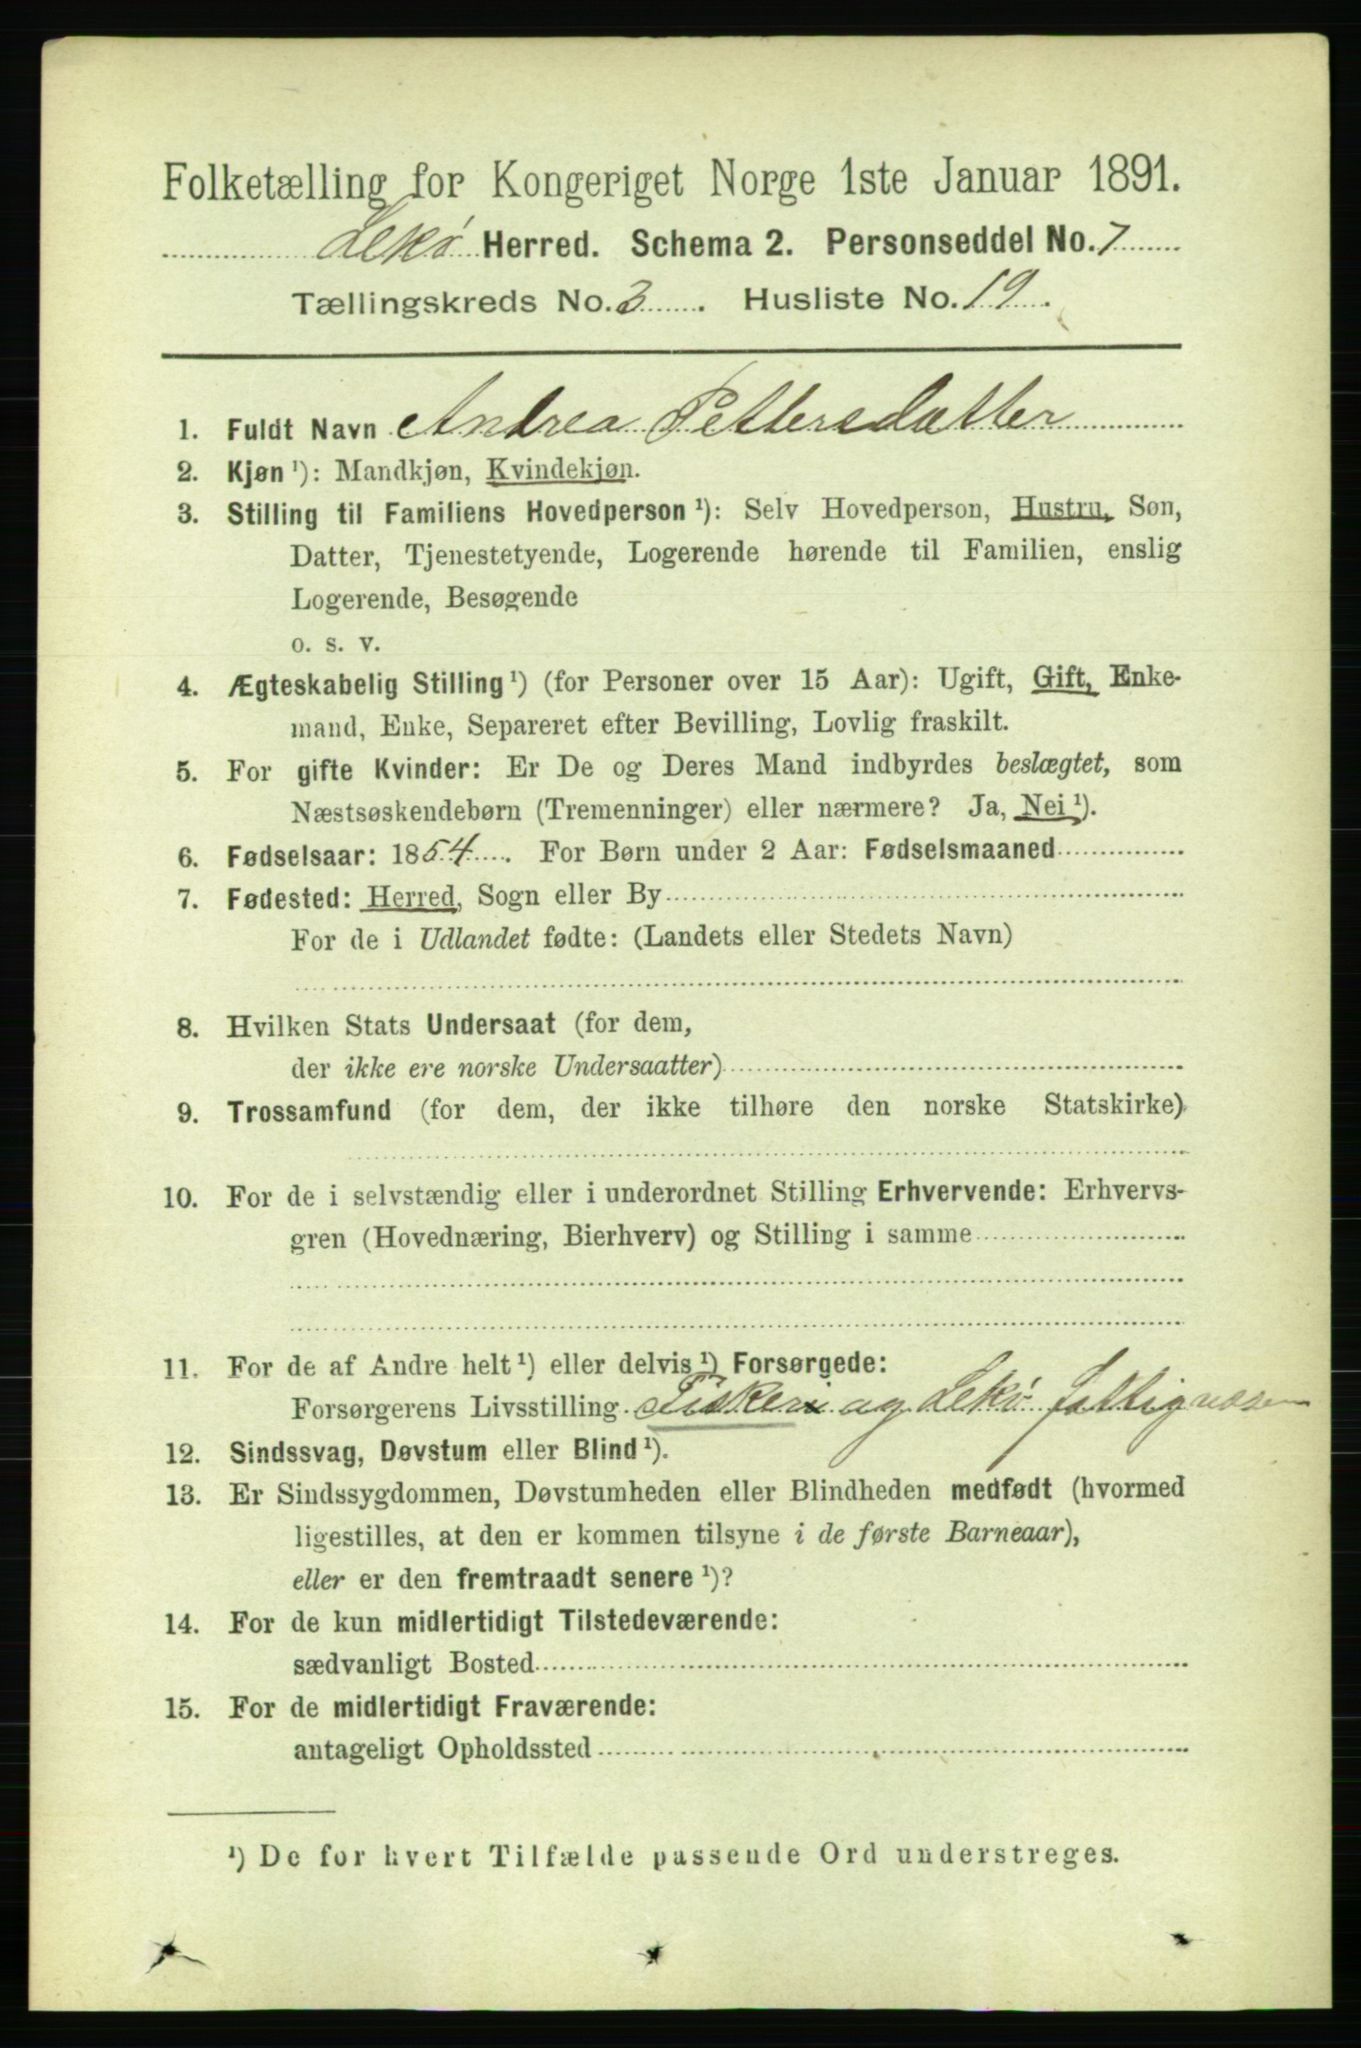 Folketælling for Kongeriget Norge 1ste Januar 1891.
Lekø Herred. Schema 2. Personseddel No. 7
Tællingskreds No. 3. Husliste No. 19.
1. Fuldt Navn Andrea Pettersdatter
2. Kjøn ¹): Mandkjøn, Kvindekjøn.
3. Stilling til Familiens Hovedperson ¹): Selv Hovedperson, Hustru, Søn,
Datter, Tjenestetyende, Logerende hørende til Familien, enslig
Logerende, Besøgende
o. s. v.
4. Ægteskabelig Stilling ¹) (for Personer over 15 Aar): Ugift, Gift, Enke-
mand, Enke, Separeret efter Bevilling, Lovlig fraskilt.
5. For gifte Kvinder: Er De og Deres Mand indbyrdes beslægtet, som
Næstsøskendebørn (Tremenninger) eller nærmere? Ja, Nei ¹).
6. Fødselsaar: 1854. For Børn under 2 Aar: Fødselsmaaned
7. Fødested: Herred, Sogn eller By
For de i Udlandet fødte: (Landets eller Stedets Navn)
8. Hvilken Stats Undersaat (for dem,
der ikke ere norske Undersaatter)
9. Trossamfund (for dem, der ikke tilhøre den norske Statskirke)
10. For de i selvstændig eller i underordnet Stilling Erhvervende: Erhvervs-
gren (Hovednæring, Bierhverv) og Stilling i samme
11. For de af Andre helt ¹) eller delvis ¹) Forsørgede:
Forsørgerens Livsstilling Fisker og Lekø fattigvæsen
12. Sindssvag, Døvstum eller Blind ¹).
13. Er Sindssygdommen, Døvstumheden eller Blindheden medfødt (hvormed
ligestilles, at den er kommen tilsyne i de første Barneaar),
eller er den fremtraadt senere ¹)?
14. For de kun midlertidigt Tilstedeværende:
sædvanligt Bosted
15. For de midlertidigt Fraværende:
antageligt Opholdssted
¹) De for hvert Tilfælde passende Ord understreges.